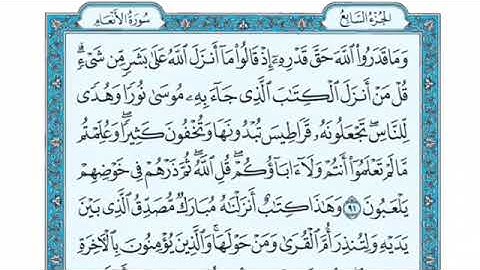 الجزء السابع سورة الأنعام
وَمَا قَدَرُوا۟ ٱللَّهَ حَقَّ قَدْرِهِۦٓ إِذْ قَالُوا۟ مَآ أَنزَلَ ٱللَّهُ عَلَىٰ بَشَرٍ مِّن شَىْءٍ ۗ
قُلْ مَنْ أَنزَلَ ٱلْكِتَٰبَ ٱلَّذِى جَآءَ بِهِۦ مُوسَىٰ نُورًا وَهُدًى
لِّلنَّاسِ ۖ تَجْعَلُونَهُۥ قَرَاطِيسَ تُبْدُونَهَا وَتُخْفُونَ كَثِيرًا ۖ وَعُلِّمْتُم
مَّا لَمْ تَعْلَمُوٓا۟ أَنتُمْ وَلَآ ءَابَآؤُكُمْ ۖ قُلِ ٱللَّهُ ۖ ثُمَّ ذَرْهُمْ فِى خَوْضِهِمْ
يَلْعَبُونَ ٩١ وَهَٰذَا كِتَٰبٌ أَنزَلْنَٰهُ مُبَارَكٌ مُّصَدِّقُ ٱلَّذِى بَيْنَ
يَدَيْهِ وَلِتُنذِرَ أُمَّ ٱلْقُرَىٰ وَمَنْ حَوْلَهَا ۚ وَٱلَّذِينَ يُؤْمِنُونَ بِٱلْءَاخِرَةِ